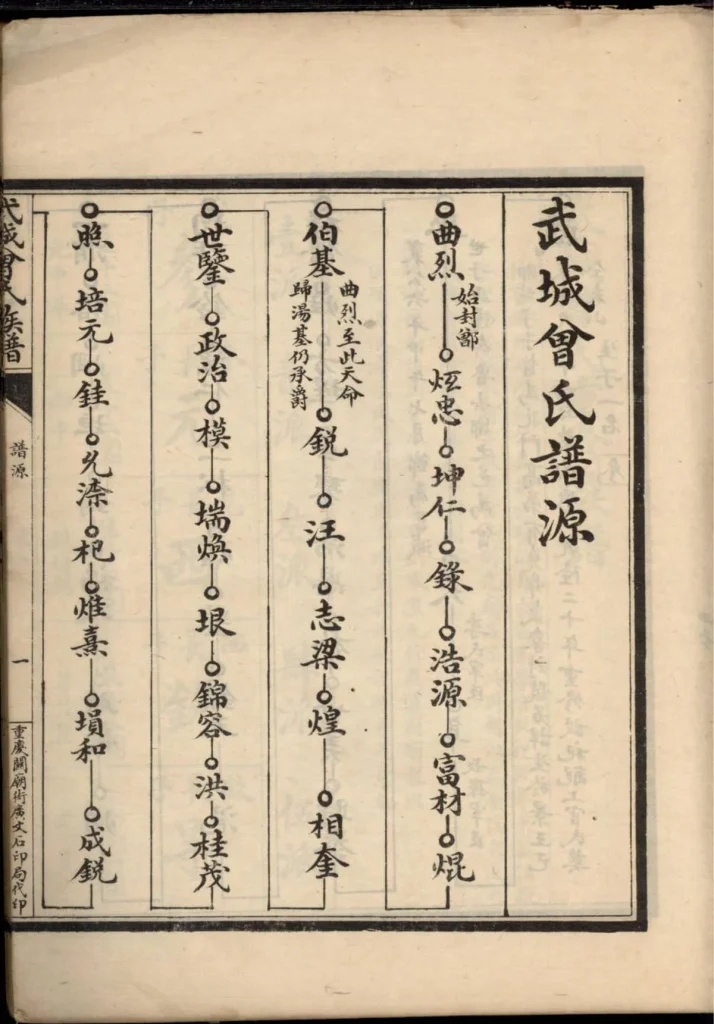 武城曾氏譜源
曲烈 始封鄫 烜忠 坤仁 錄 浩源 富材 焜
伯基 曲烈至此天命歸湯基仍承爵 鋭 汪 志梁 煌 相奎
世鑒 政治 模 瑞煥 垠 錦容 洪 桂茂
照 培元 銈 杞 熹 塤和 成鋭
武城曾氏族譜
譜源
一
重慶關廟街廣文石印局代印